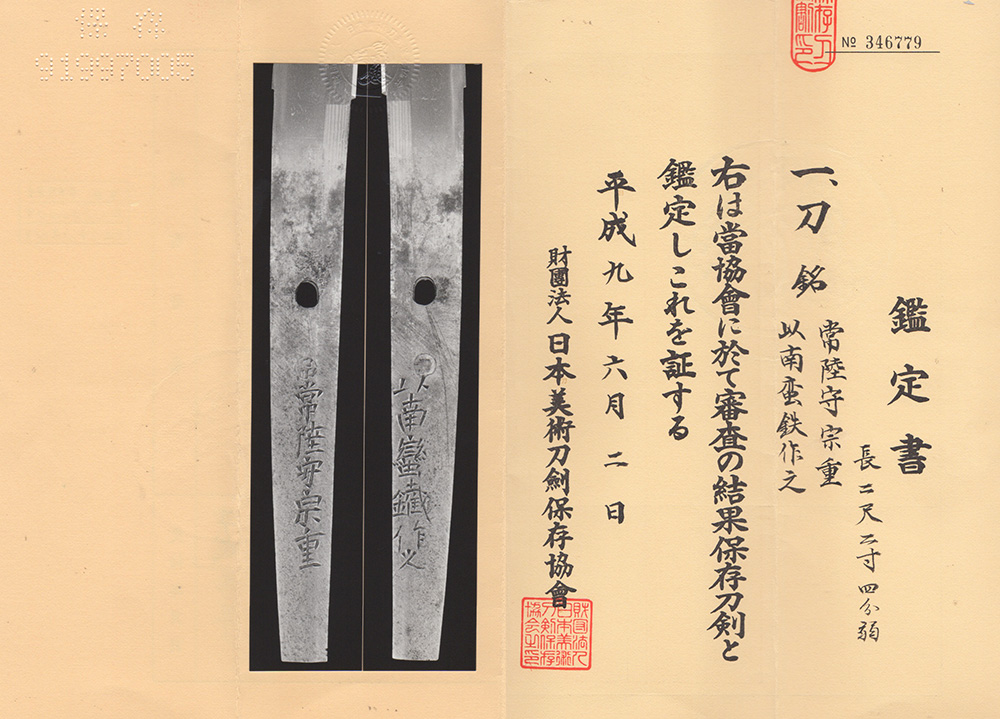 № 346779
鑑定書
長二尺二寸四分弱
一、刀 銘 常陸守宗重
以南蛮鉄作之
右は當協會に於て審査の結果保存刀剣と
鑑定しこれを証する
平成九年六月二日
財團法人日本美術刀劍保存協會
財団法人
日本美術
刀剣保存
協会之印
以南蠻鐵作之
常陸守宗重
保存
91997005